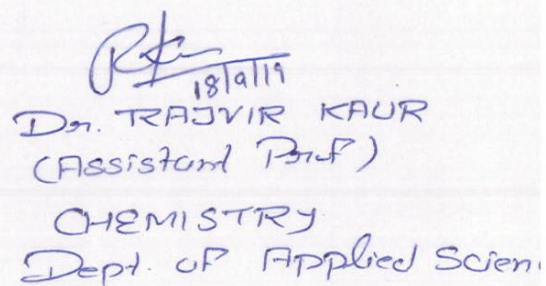 18/9/19
Dr. RAJVIR KAUR
(Assistant Prof)
CHEMISTRY
Dept. of Applied Scien